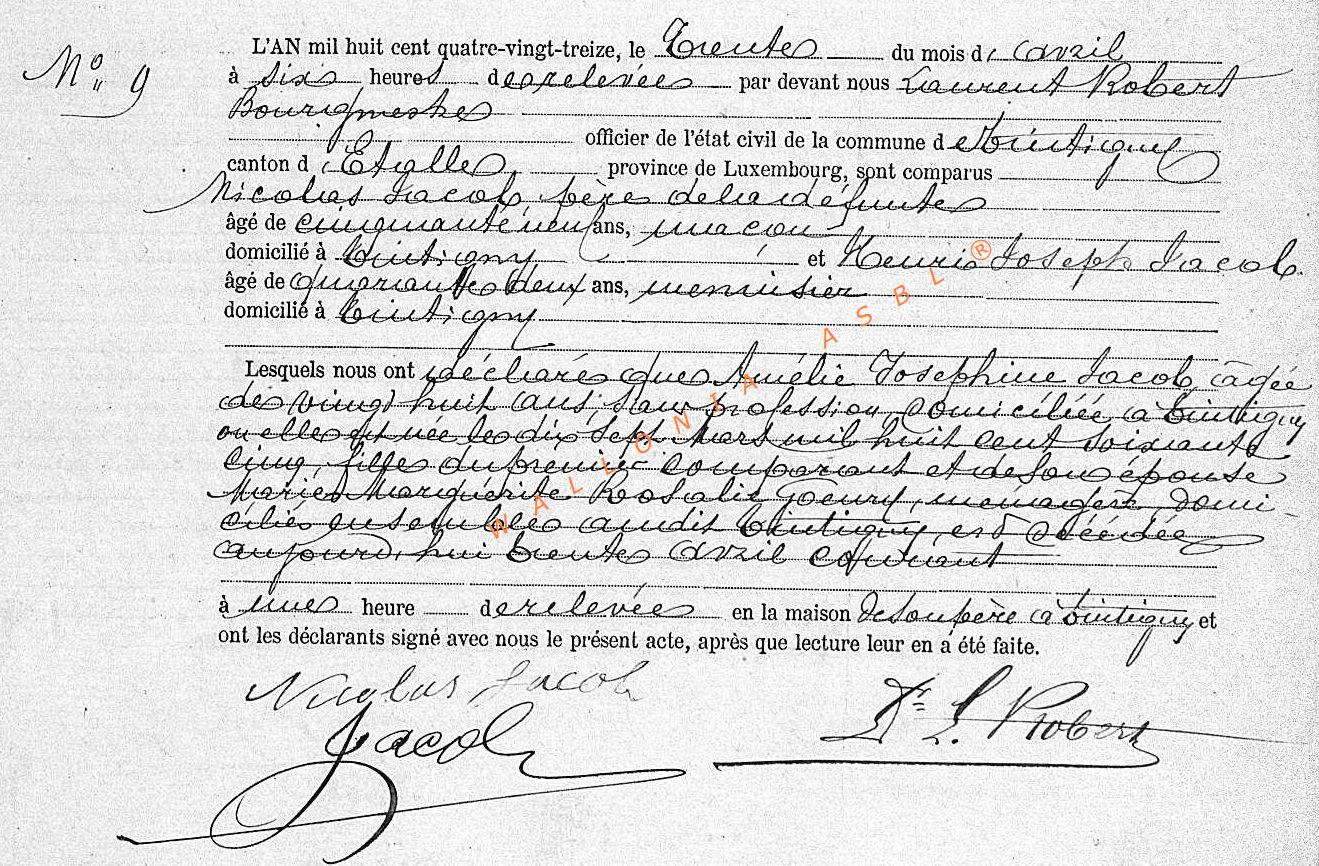 N° 9
L'AN mil huit cent quatre-vingt-treize, le Trente du mois d' avril
à six heures de relevée par devant nous Laurent Robert
Bourgmestre
officier de l'état civil de la commune de Tintigny
canton d' Etalle province de Luxembourg, sont comparus
Nicolas Jacob, père de la défunte
âgé de cinquante neuf ans, maçon
domicilié à Tintigny et Henri Joseph Jacob
âgé de quarante deux ans, menuisier
domicilié à Tintigny
Lesquels nous ont déclaré que Amélie Josephine Jacob, âgée
de vingt huit ans, sans profession, domiciliée à Tintigny
où elle est née le dix sept Mars mil huit cent soixante
cinq, fille du premier comparant et de son épouse
Marie Marguérite Rosalie Goeury, ménagère, domi-
ciliés ensemble audit Tintigny, est décédée
aujourd'hui trente avril courant
à une heure de relevée en la maison de son père à Tintigny et
ont les déclarants signé avec nous le présent acte, après que lecture leur en a été faite.
Nicolas Jacob
Jacob
Dr L. Robert
WALLONIA ASBL ®